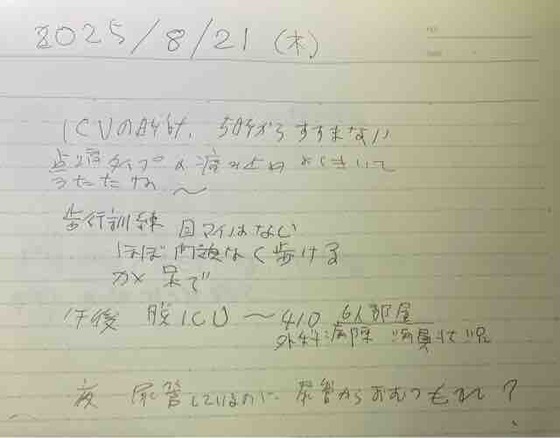 2025/8/21 (木)
ICUの時計、5時からすすまない
点滴タイプの痛み止め よくきいて
うたたね〜
歩行訓練 目マイはなし
ほぼ問題なく歩ける
午後 脱ICU 〜 410 6人部屋
外科病院 満員状況
夜 尿管しているのに、尿管からおむつもれ?